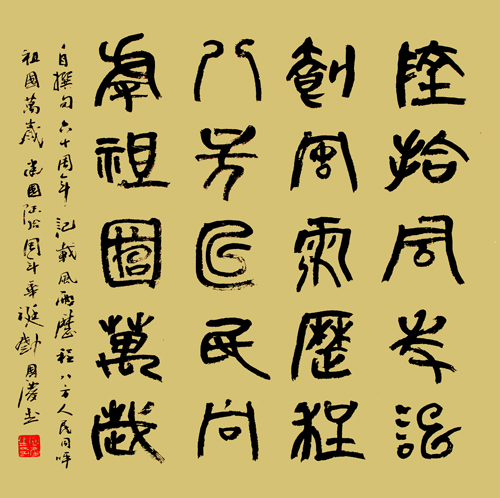 陸拾周年記
載風雨歷程
八方人民同
呼祖國萬歲
自撰句六十周年記載風雨歷程八方人民同呼
祖國萬歲 國陸拾周年華誕